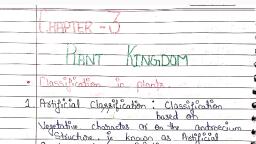 CHAPTER - 3
PLANT KINGDOM
Classification in plants.
1. Artificial Classification : Classification
based on
Vegetative character or on the androecium
Structure is known as Artificial